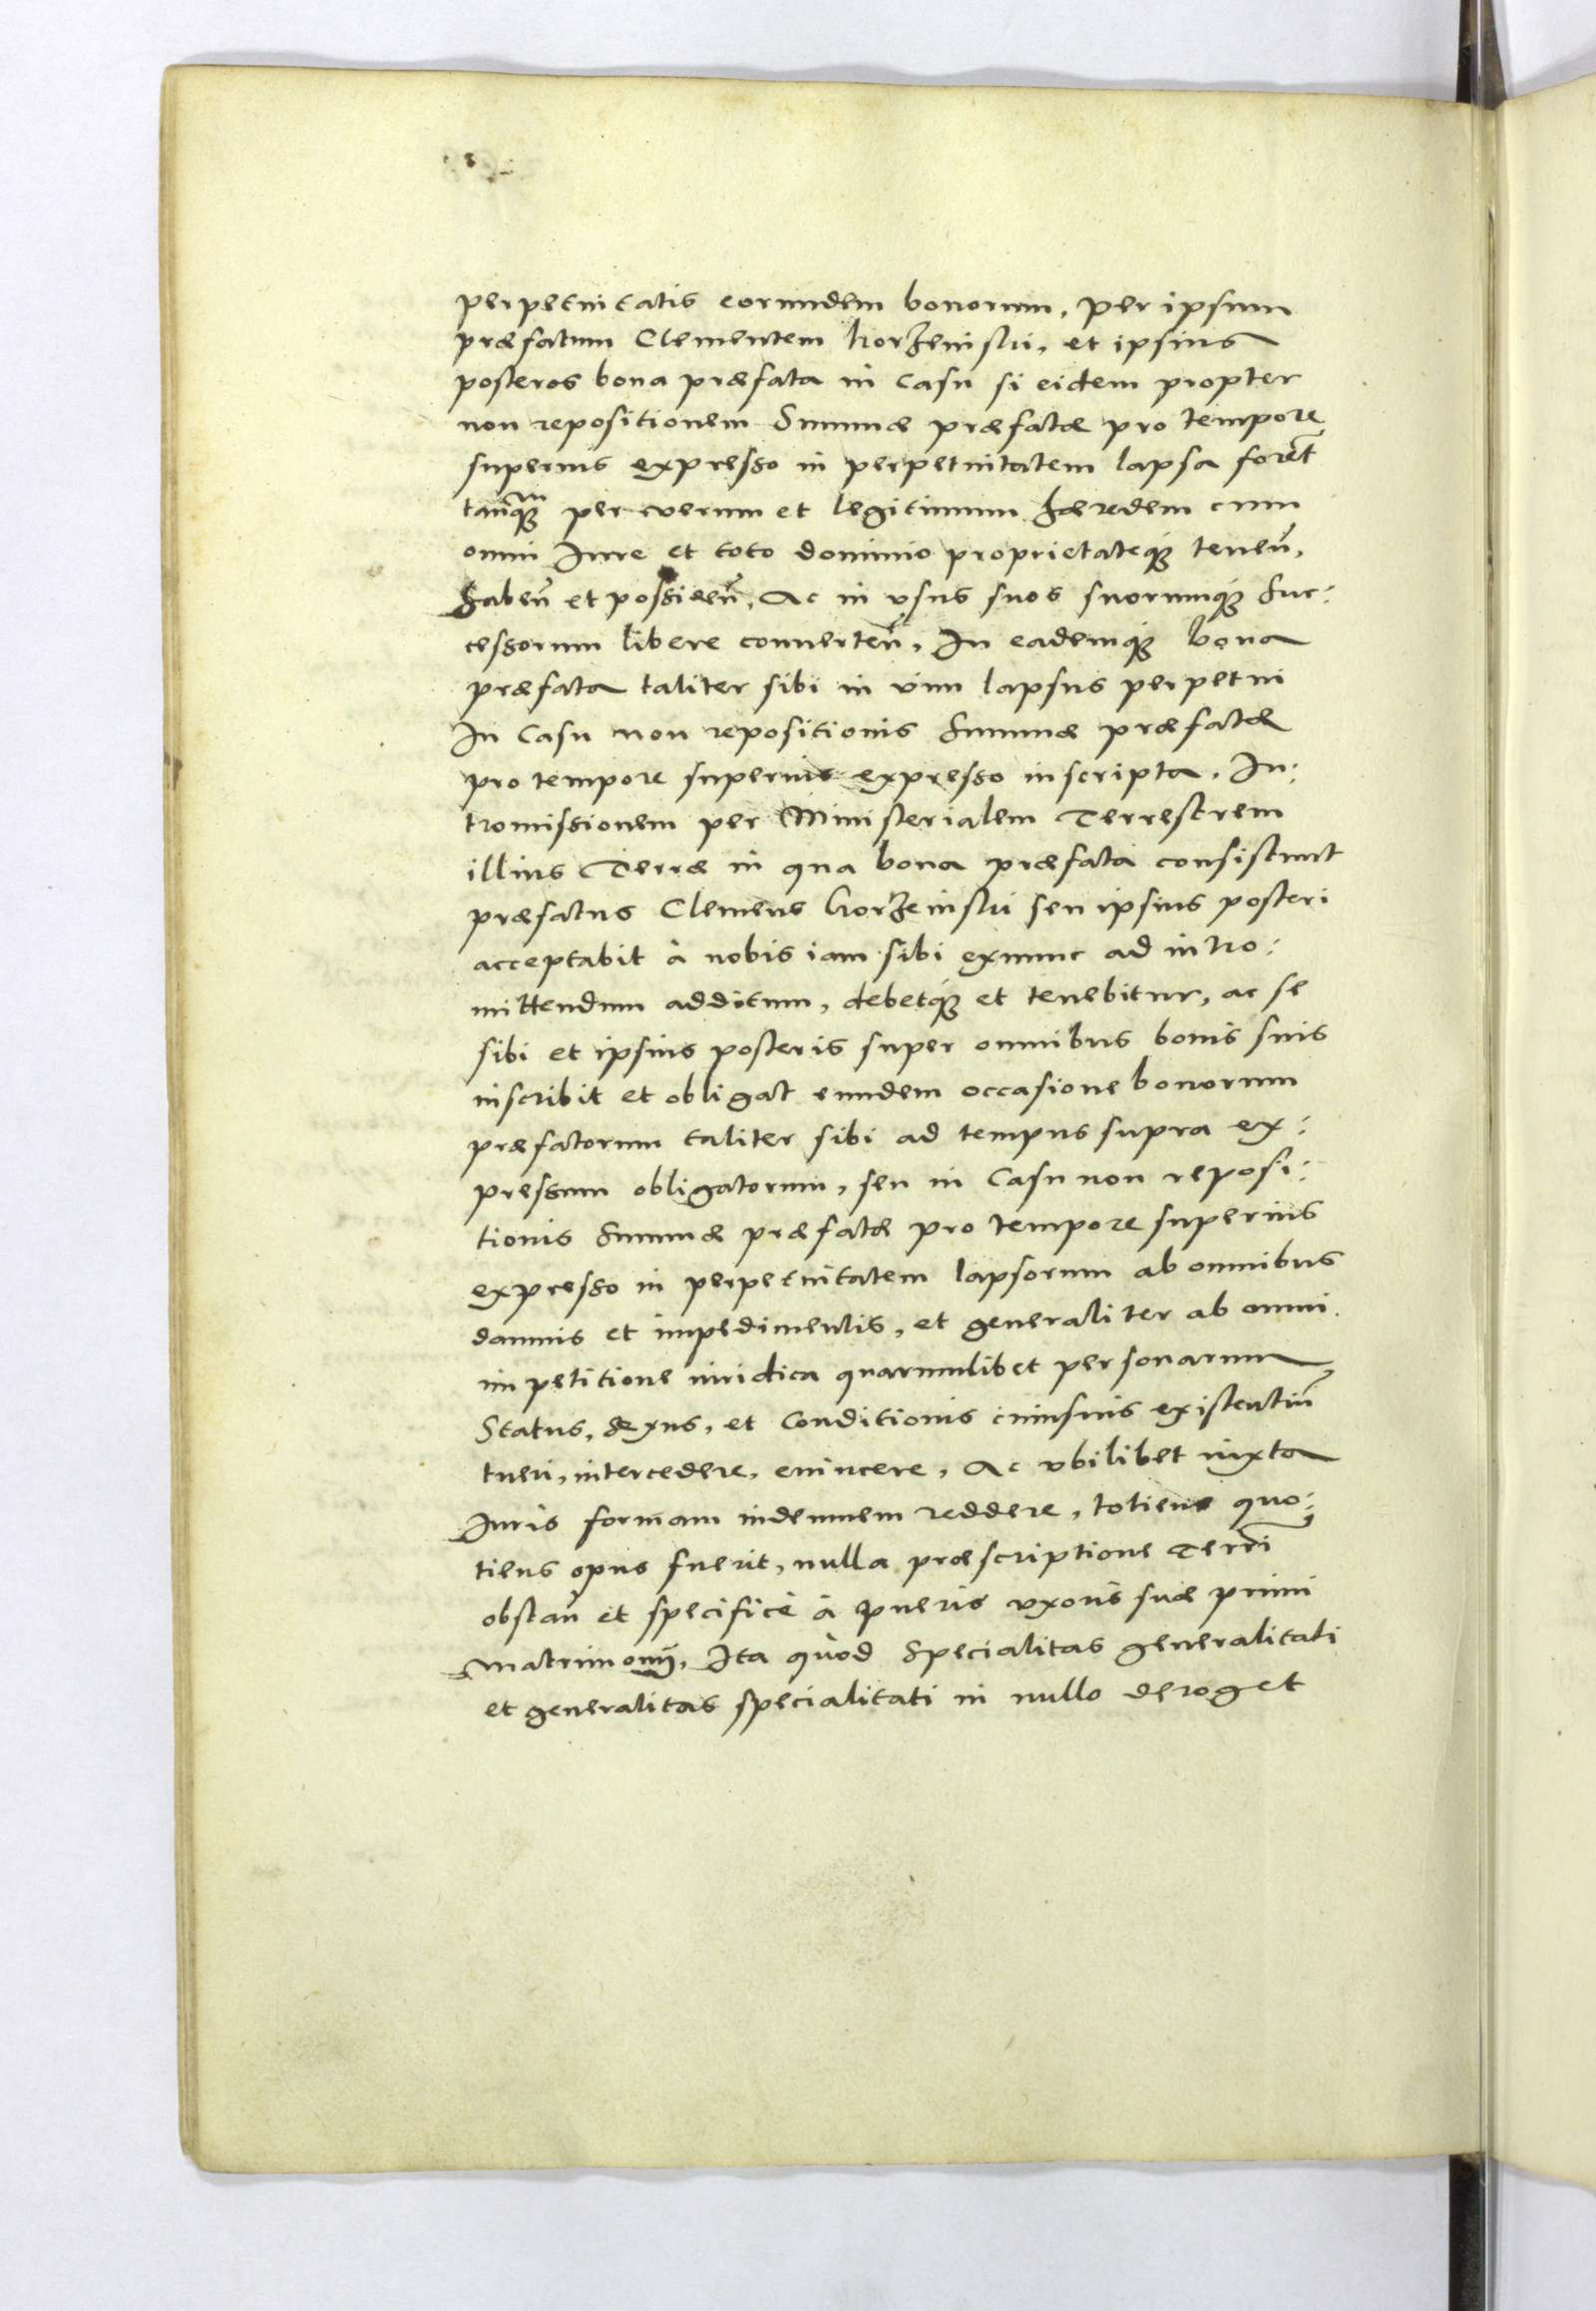 perpetuitatis eorundem bonorum, per ipsum
præfatum Clementem korzenisky, et ipsius
posteros bona præfata in casu si eidem propter
non repositionem Summæ præfatæ pro tempore
superius expresso in perpetuitatem lapsa foret
tanq̃ꝫ per verum et legitimum hæredem cum
omni Iure et toto dominio proprietateqꝫ teneñ,
habeñ et possideñ, Ac in vsus suos suorumqꝫ suc:
cessorum libere conuerteñ, In eademqꝫ bona
præfata taliter sibi in vim lapsus perpetui
In Casu non repositionis summæ præfatæ
pro tempore superius expresso inscripta, In:
tromissionem per Ministerialem Terrestrem
illius Terræ in qua bona præfata consistunt
præfatus Clemens korzeinsky seu ipsius posteri
acceptabit à nobis iam sibi exnunc ad intro:
mittendum additum, debetqꝫ et tenebitur, ac se
sibi et ipsius posteris super omnibus bonis suis
inscribit et obligat eundem occasione bonorum
præfatorum taliter sibi ad tempus supra ex:
pressum obligatorum, seu in Casu non reposi:
tionis summæ præfatæ pro tempore superius
expresso in perpetuitatem lapsorum ab omnibus
damnis et impedimentis, et generaliter ab omni
impetitione iuridica quarumlibet personarum,
Status, sexus, et Conditionis cuiusuis existentiũ
tueri, intercedere, euincere, Ac vbilibet iuxta
Iuris formam indemnem reddere, totiens quo:
tiens opus fuerit, nulla præscriptione Terrĩ
obstañ et specificè à pueris vxoris suæ primi
Matrimonij, Ita quòd Specialitas generalitati
et generalitas specialitati in nullo deroget